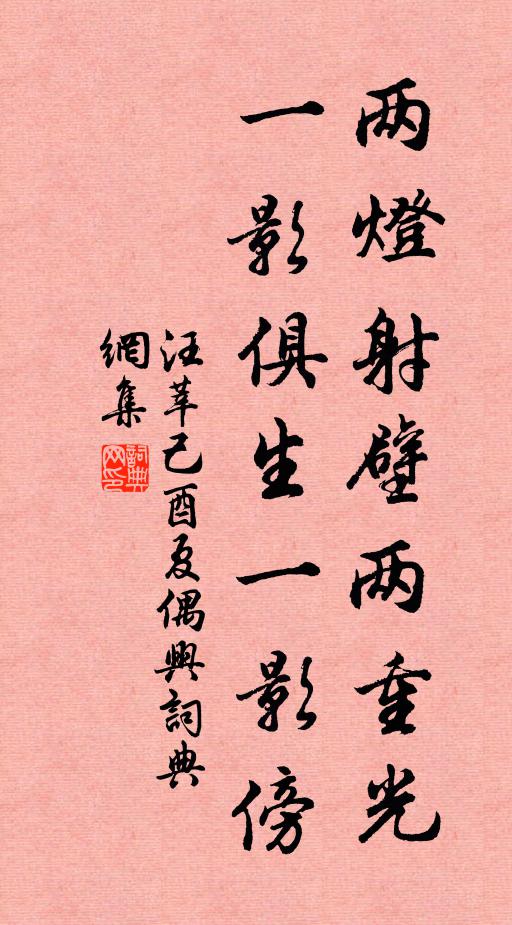 两燈射壁两重光
一影俱生一影傍
汪莘己酉夏偶興詞典
網集
詞典
网印